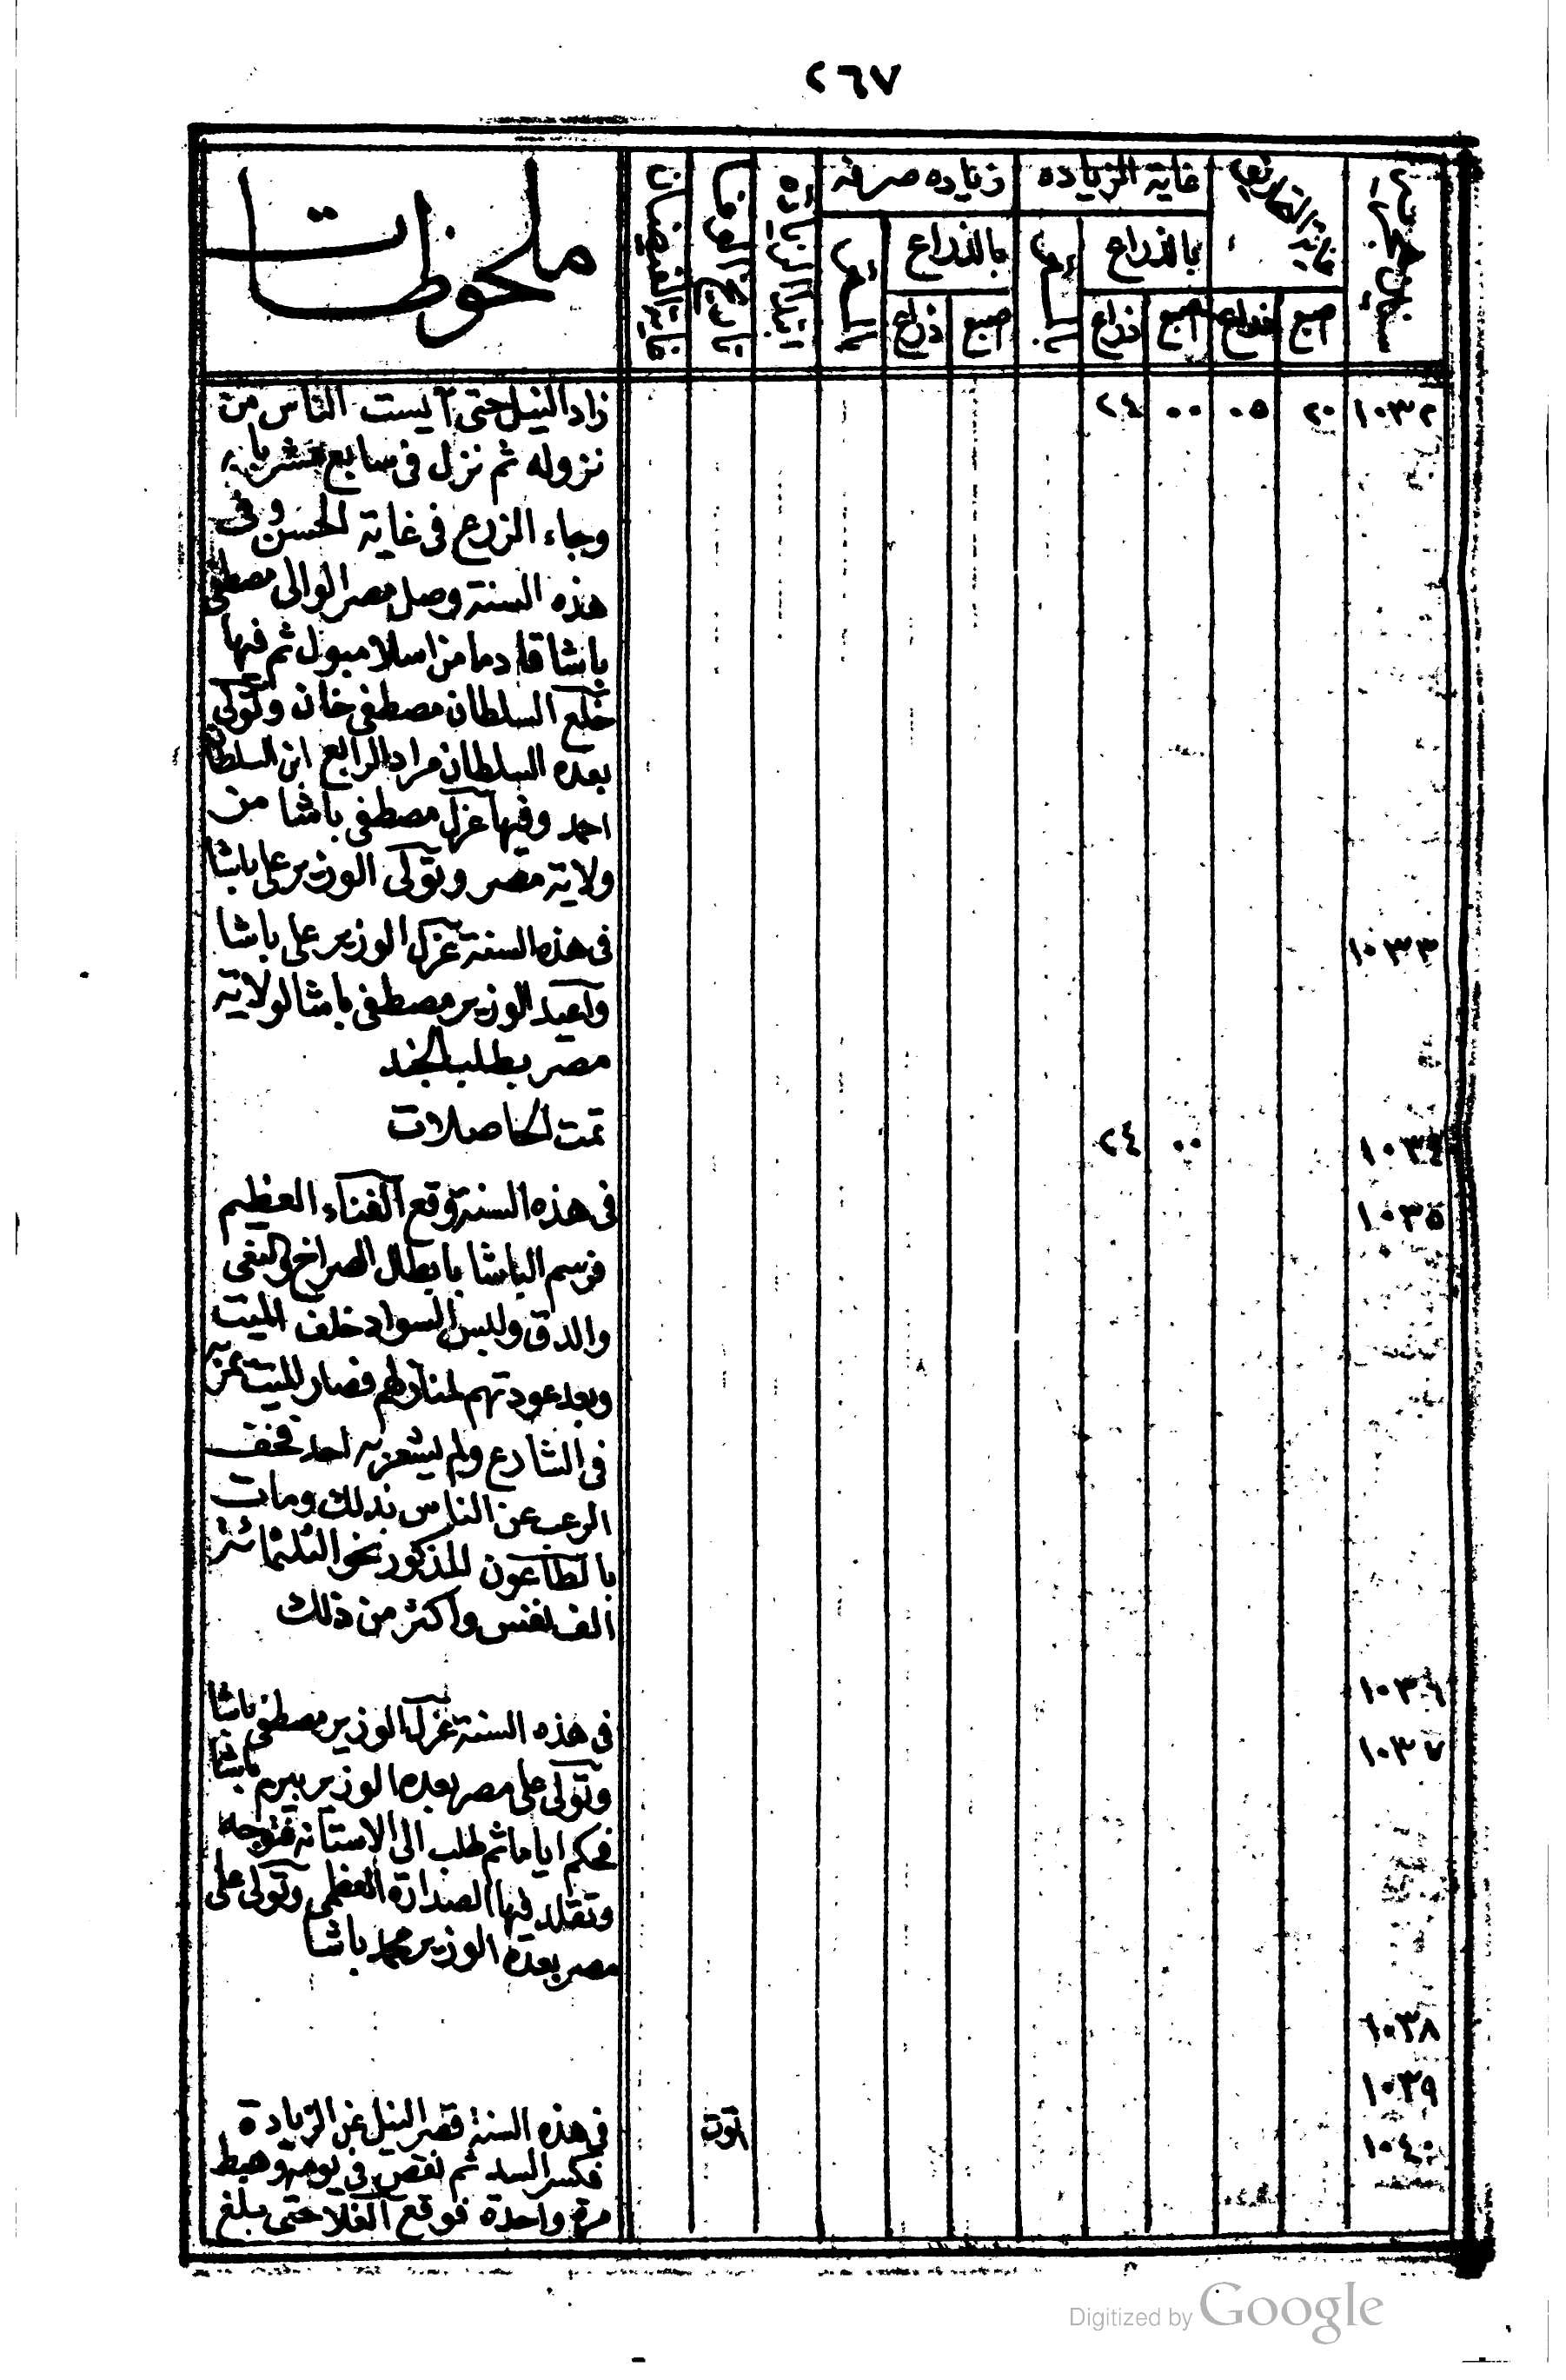 ٢٦٧
غاية الزياده
زياده صرفه
ملحوظات
بالذراع
بالذراع
اصبع
ذراع
اصبع
ذراع
اصبع
ذراع
١٠٣٢ ٢٠ ٠٥ ٠٠ ٢٤ زاد النيل حتى آيست الناس من
نزوله ثم نزل فى سابع عشر بابه
وجاء الزرع فى غاية الحسن وفى
هذه السنة وصل مصر الوالى مصطفى
باشا قادما من اسلامبول ثم فيها
خلع السلطان مصطفى خان وتولى
بعده السلطان مراد الرابع ابن السلطان
احمد وفيها عزل مصطفى باشا من
ولاية مصر وتولى الوزير على باشا
١٠٣٣ فى هذه السنة عزل الوزير على باشا
واعيد الوزير مصطفى باشا لولاية
مصر بطلب الجند
١٠٣٤ ٠٠ ٢٤ تمت الحاصلات
١٠٣٥ فى هذه السنة وقع الفناء العظيم
فرسم الباشا بابطال الصراخ والنعى
والدق ولبس السواد خلف الميت
وبعد عودتهم لمنازلهم فصار الميت يمر به
فى الشارع ولم يشعر به احد فخف
الرعب عن الناس بذلك ومات
بالطاعون المذكور نحو الثلثمائة
الف نفس واكثر من ذلك
١٠٣٦
١٠٣٧ فى هذه السنة عزل الوزير مصطفى باشا
وتولى على مصر بعده الوزير بيرم باشا
فحكم اياما ثم طلب الى الاستانه فتوجه
وتقلد فيها الصدارة العظمى وتولى على
مصر بعده الوزير محمد باشا
١٠٣٨
١٠٣٩
١٠٤٠ توت فى هذه السنة قصر النيل عن الزيادة
فكسر السد ثم نقص فى يومه وهبط
مرة واحدة فوقع الغلا حتى بلغ
Digitized by Google